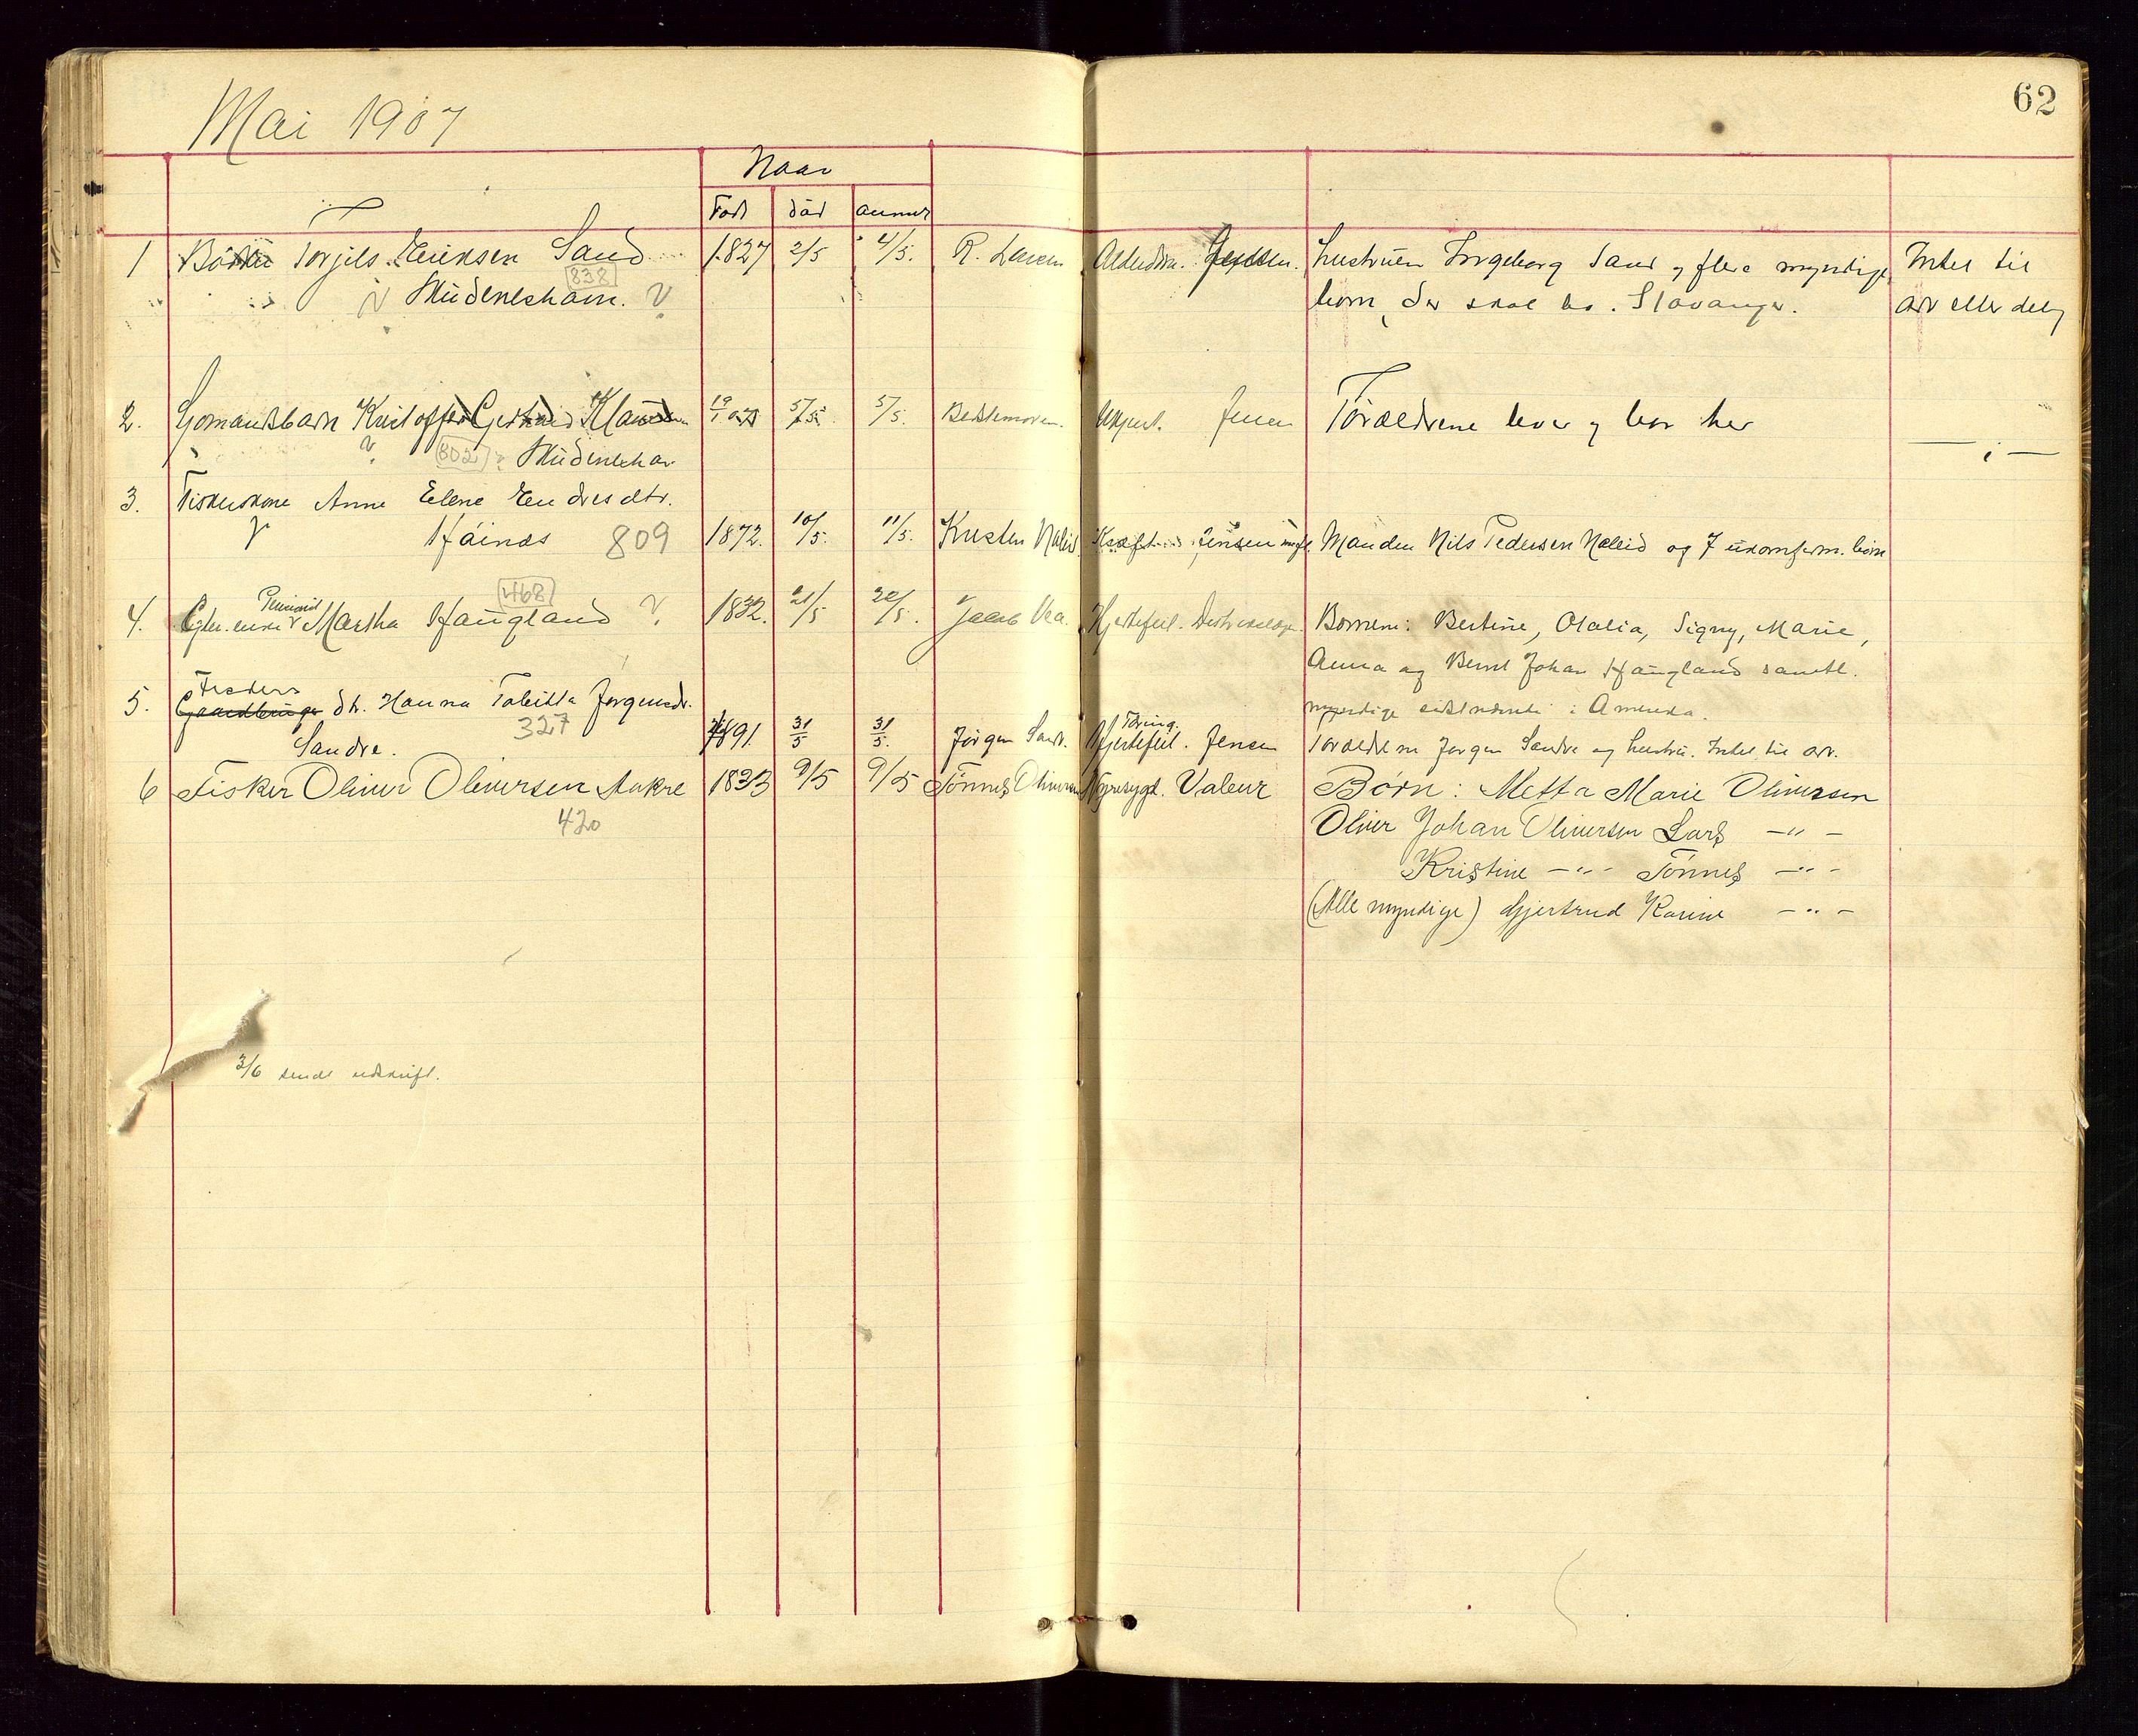 Mai 1907
62
Naar
Født død anmeldt
1 Bødker Torjils Eriksen Sand 1827 2/5 4/5. R. Larsen Alderdom. Jensen. hustruen Ingeborg Sand og flere myndige Intet til
838
Skudeneshavn. børn, der skal bo i Stavanger. arv eller deling
2. Sømandsbarn Kristoffer 5/5 5/5. Bedstemoren. Jensen Forældrene lever og bor her
802 Skudeneshavn
3. Fiskerkone Anne Elene Endresdtr.
Håines 809 1872. 10/5. 11/5. Kristen Naleid Kræft Jensen Manden Nils Pedersen Naleid og 7 ukonfirm. børn
468
4. enke Martha Haugland 1832. 21/5 22/5. Jacob Vea. Hjertefeil. Børnene: Bertine, Olalia, Signy, Marie,
Anna og Bernt Johan Haugland samtl.
myndige i Amerika.
5. Fiskers
dtr. Hanna Tobitta Jørgensdr.
327
Sandve. 1891. 31/5 31/5. Jørgen Sandv. Hjertefeil. Jensen Forældrene Jørgen Sandve og hustru. Intet til arv.
6 Fisker Oliver Oliversen Aakre 1833 9/5 9/5 Tønnes Oliversen Nyresygd. Valeur Børn: Metta Marie Oliversen
420
Oliver Johan Oliversen Lars -"-
Kristine -"- Tønnes -"-
(Alle myndige) Gjertrud Karine -"-
3/6 sendt udskrift.